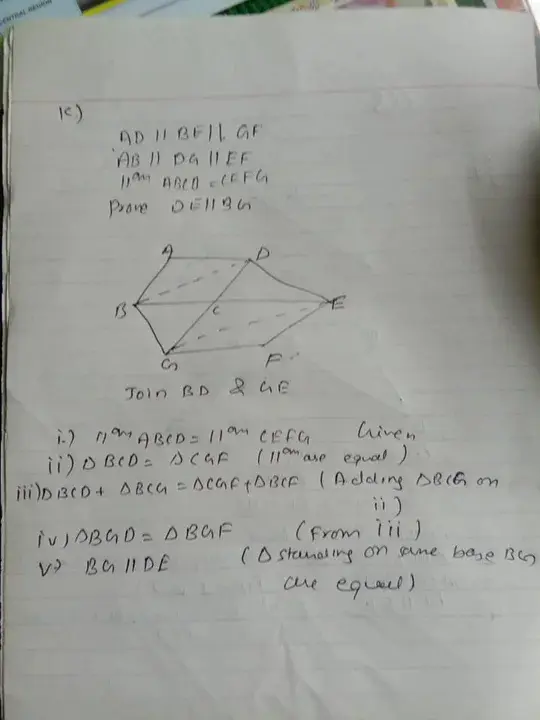 CENTRAL REGION
1c)
AD || BE || GF
AB || DG || EF
||gm ABCD = CEFG
Prove DE || BG
A D
B C E
G F
Join BD & GE
i.) ||gm ABCD = ||gm CEFG Given
ii) Δ BCD = ΔCGF (||gm are equal)
iii) ΔBCD + ΔBCG = ΔCGF + ΔBCF (Adding ΔBCG on
ii)
iv) ΔBGD = ΔBGF (from iii)
v) BG || DE (Δ standing on same base BG
are equal)